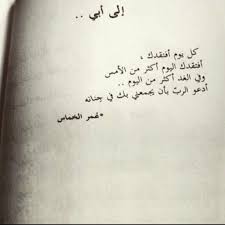 إلى أبي ..
كل يوم أفتقدك ،
أفتقدك اليوم أكثر من الأمس
وفي الغد أكثر من اليوم ..
أدعو الربّ بأن يجمعني بك في جنانه
*عمر الخماس